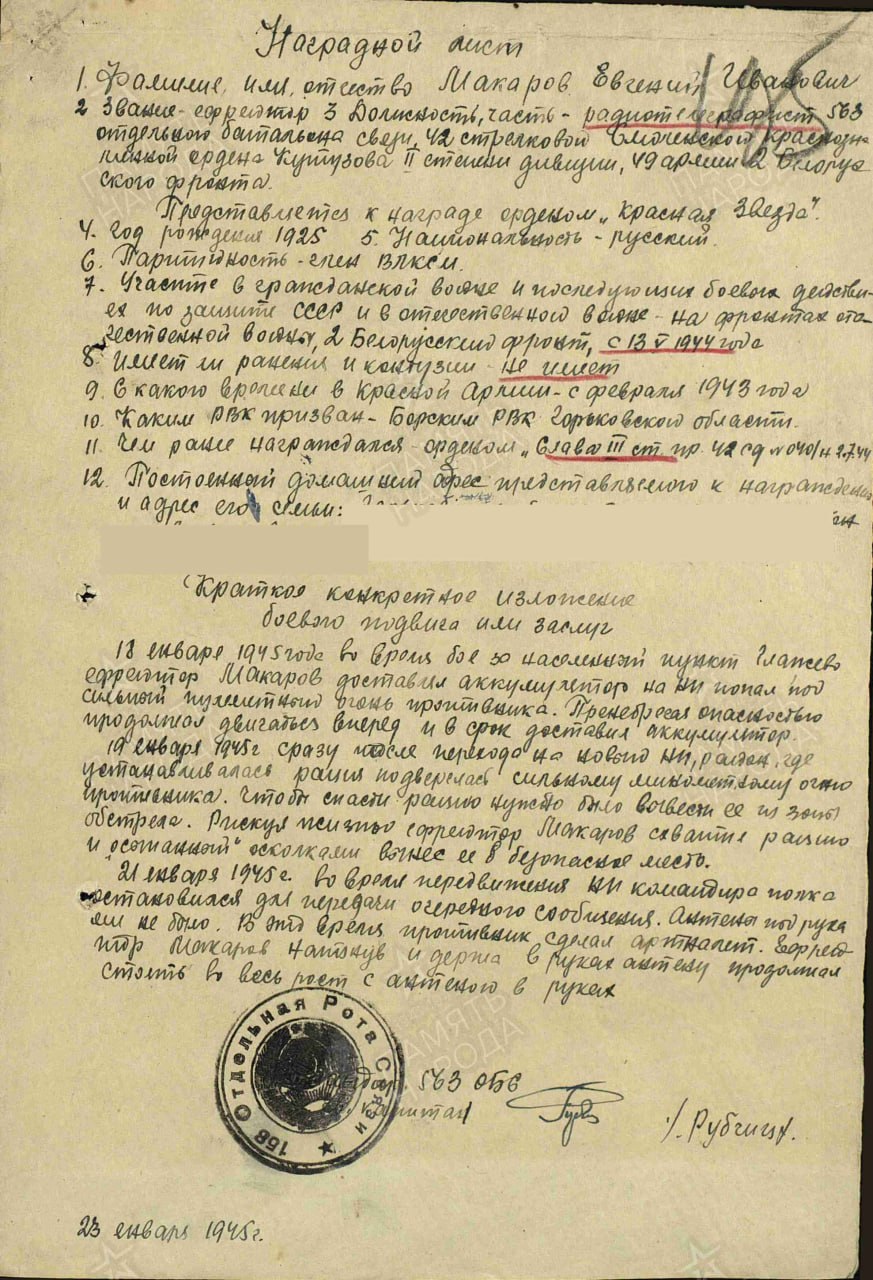 Наградной лист
1. Фамилие, имя, отчество Макаров Евгений Иванович
2 Звание - ефрейтор 3 Должность, часть - радиотелеграфист 563
отдельного батальона связи, 42 стрелковой Смоленской Краснозна
менной ордена Кутузова II степени дивизии, 49 армии 2 Белорус
ского фронта.
Представляется к награде орденом „Красная Звезда".
4. Год рождения 1925 5. Национальность - русский.
6. Партийность - член ВЛКСМ.
7. Участие в гражданской войне и последующих боевых действи-
ях по защите СССР и в отечественной войне - на фронтах оте-
чественной войны, 2 Белорусский фронт, с 13 V 1944 года
8. Имеет ли ранения и контузии - не имеет
9. С какого времени в Красной Армии - с февраля 1943 года
10. Каким РВК призван - Борским РВК Горьковской области.
11. Чем ранее награждался - орденом „Слава III ст пр. 42 сд № 040/н 2.7.44
12. Постоянный домашний адрес представляемого к награждению
и адрес его семьи:
Краткое конкретное изложение
боевого подвига или заслуг
18 января 1945 года во время боя за населенный пункт Глажево
ефрейтор Макаров доставляя аккумулятор на НП попал под
сильный пулеметный огонь противника. Пренебрегая опасностью
продолжал двигаться вперед и в срок доставил аккумулятор.
19 января 1945 г сразу после перехода на новый НП, район, где
устанавливалась рация подвергся сильному минометному огню
противника. Чтобы спасти рацию нужно было вывести ее из зоны
обстрела. Рискуя жизнью ефрейтор Макаров схватил рацию
и „осыпанный" осколками вынес ее в безопасное место.
21 января 1945 г. во время передвижения НП командира полка
остановился для передачи очередного сообщения. Антены под рука
ми не было. В это время противник сделал артналет. Ефрей
тор Макаров натянув и держа в руках антену продолжал
стоять во весь рост с антеной в руках
158 Отдельная Рота Связи
563 ОБС
капитан
/. Рубчиц/.
23 января 1945 г.